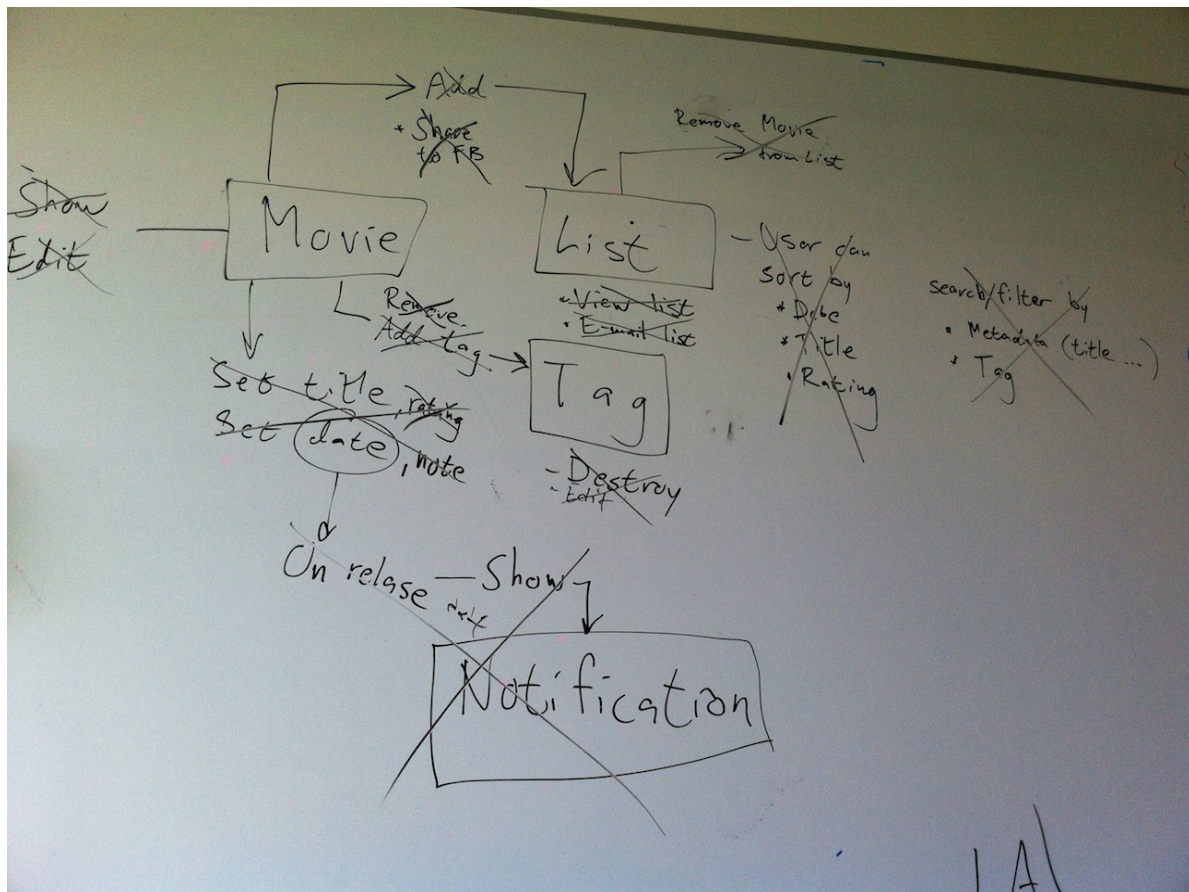 Add
* Share
to FB
Remove Movie
from List
Show
Edit
Movie
List
- User can
sort by
* Date
* Title
* Rating
search/filter by
* Metadata (title ...)
* Tag
* View list
* E-mail list
Remove
Add tag
Tag
Set title, rating
Set date, note
- Destroy
- Edit
On relase date — Show
Notification